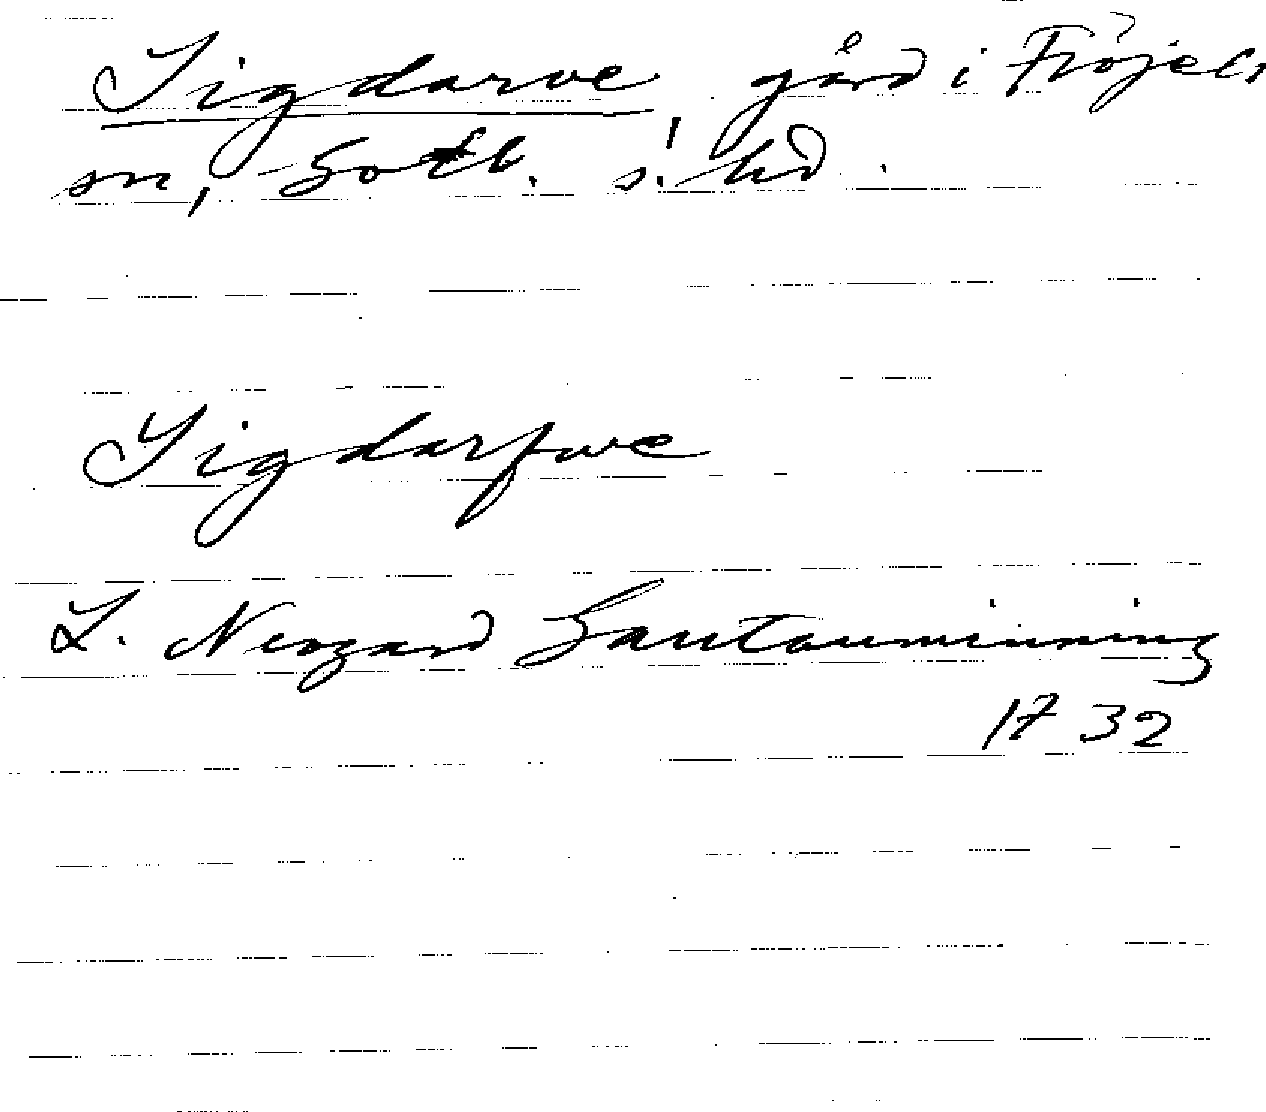 Sigdarve, gård i Fröjels
sn, Gotl. s. hd.
Sigdarfwe
L. Neogard Gautauminning
1732